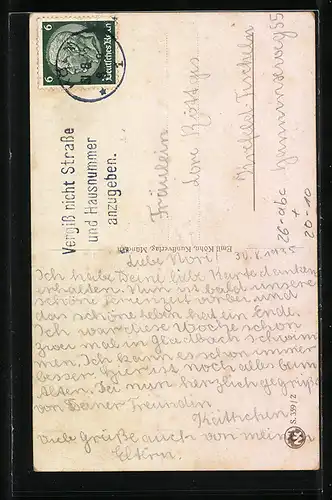 6 6
Deutsches Reich
Vergiß nicht Straße
und Hausnummer
anzugeben.
Fräulein
Lore
Krefeld-Fischeln
55
26-abc
+
20-10
Emil Köhn, Kunstverlag, München
Liebe
30.8.
Ich habe Deine liebe Karte dankend
erhalten. Nun ist bald unsere
schöne Ferienzeit vorbei und
das schöne Leben hat ein Ende.
Ich war diese Woche schon
zwei mal in Gladbach schwim-
men. Ich kann es schon immer
besser. Hier ist noch alles beim
Alten. Sei nun herzlich gegrüßt
von Deiner Freundin
Käthchen
Viele Grüße auch von meinen
Eltern.
S. 359/2